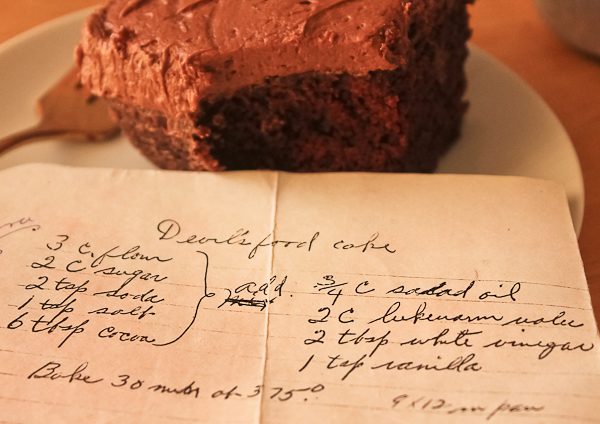 Devil's food cake
3 c. flour
2 C sugar
2 tsp soda
1 tsp salt
6 tbsp cocoa
add.
3/4 C salad oil
2 C lukewarm water
2 tbsp white vinegar
1 tsp vanilla
Bake 30 mnts at 375°
9x12 in pan